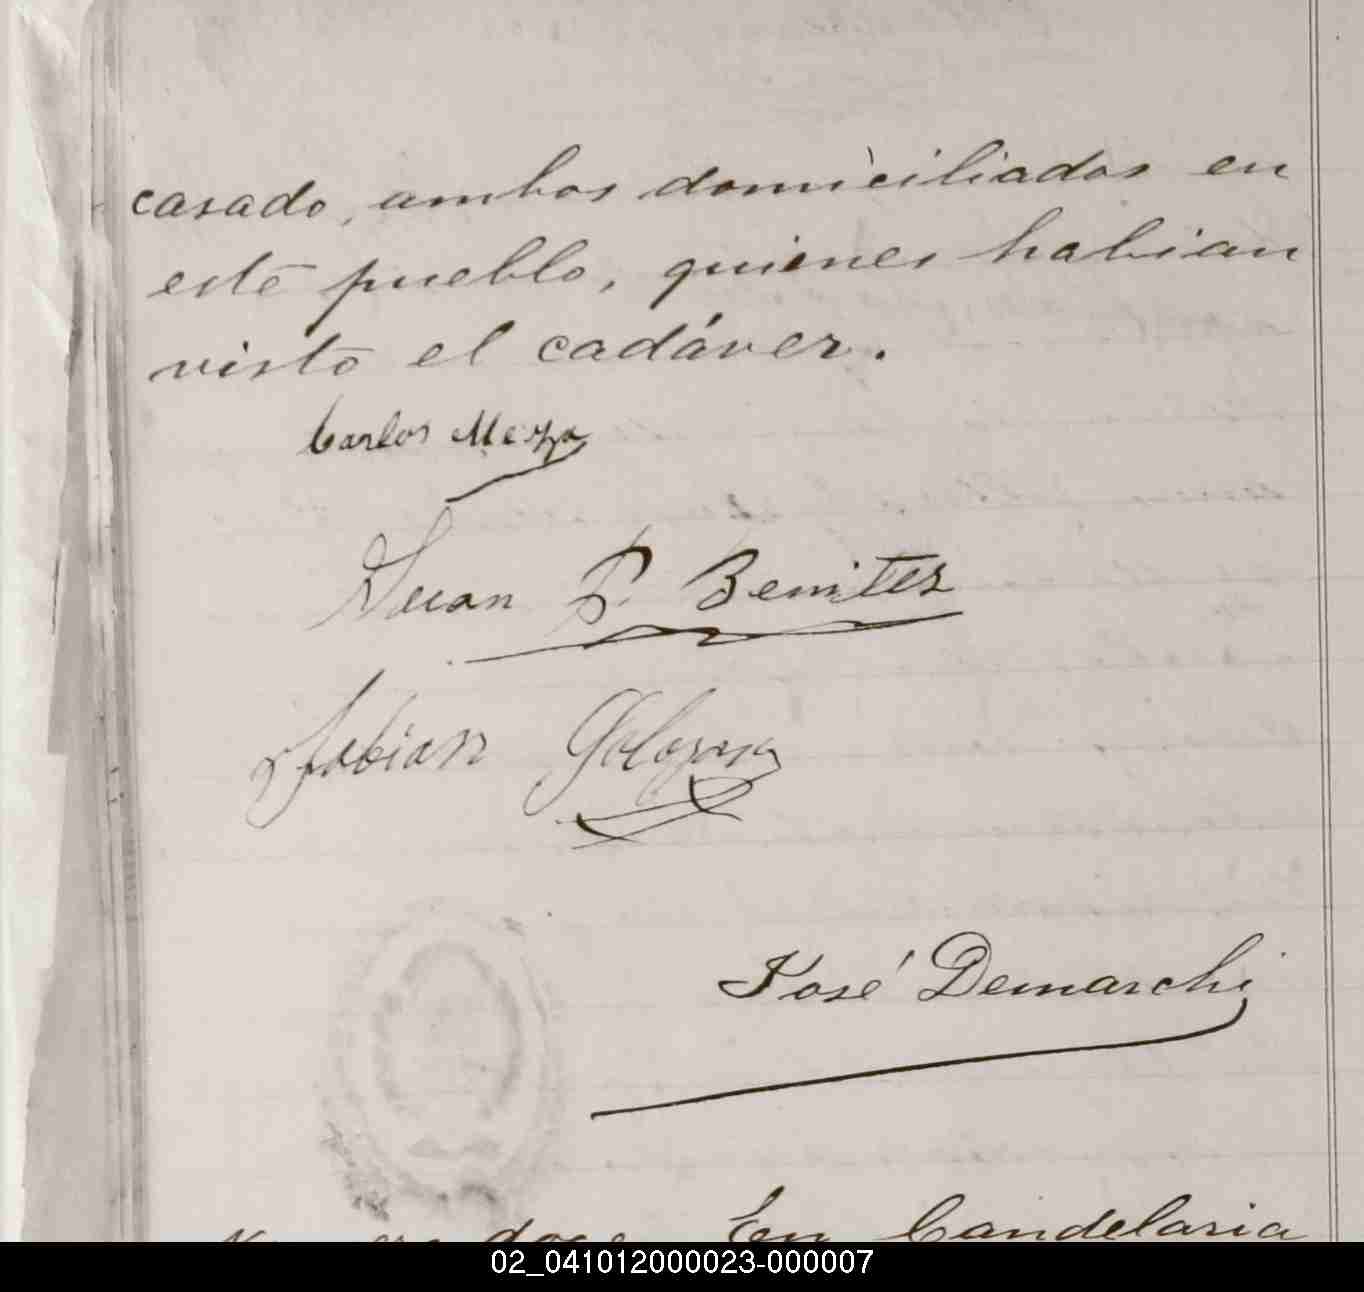 casado, ambos domiciliados en
este pueblo, quienes habian
visto el cadáver.
Carlos Meza
Juan P. Benitez
Fabian
José Demarchi
doce En Candelaria
02_041012000023-000007